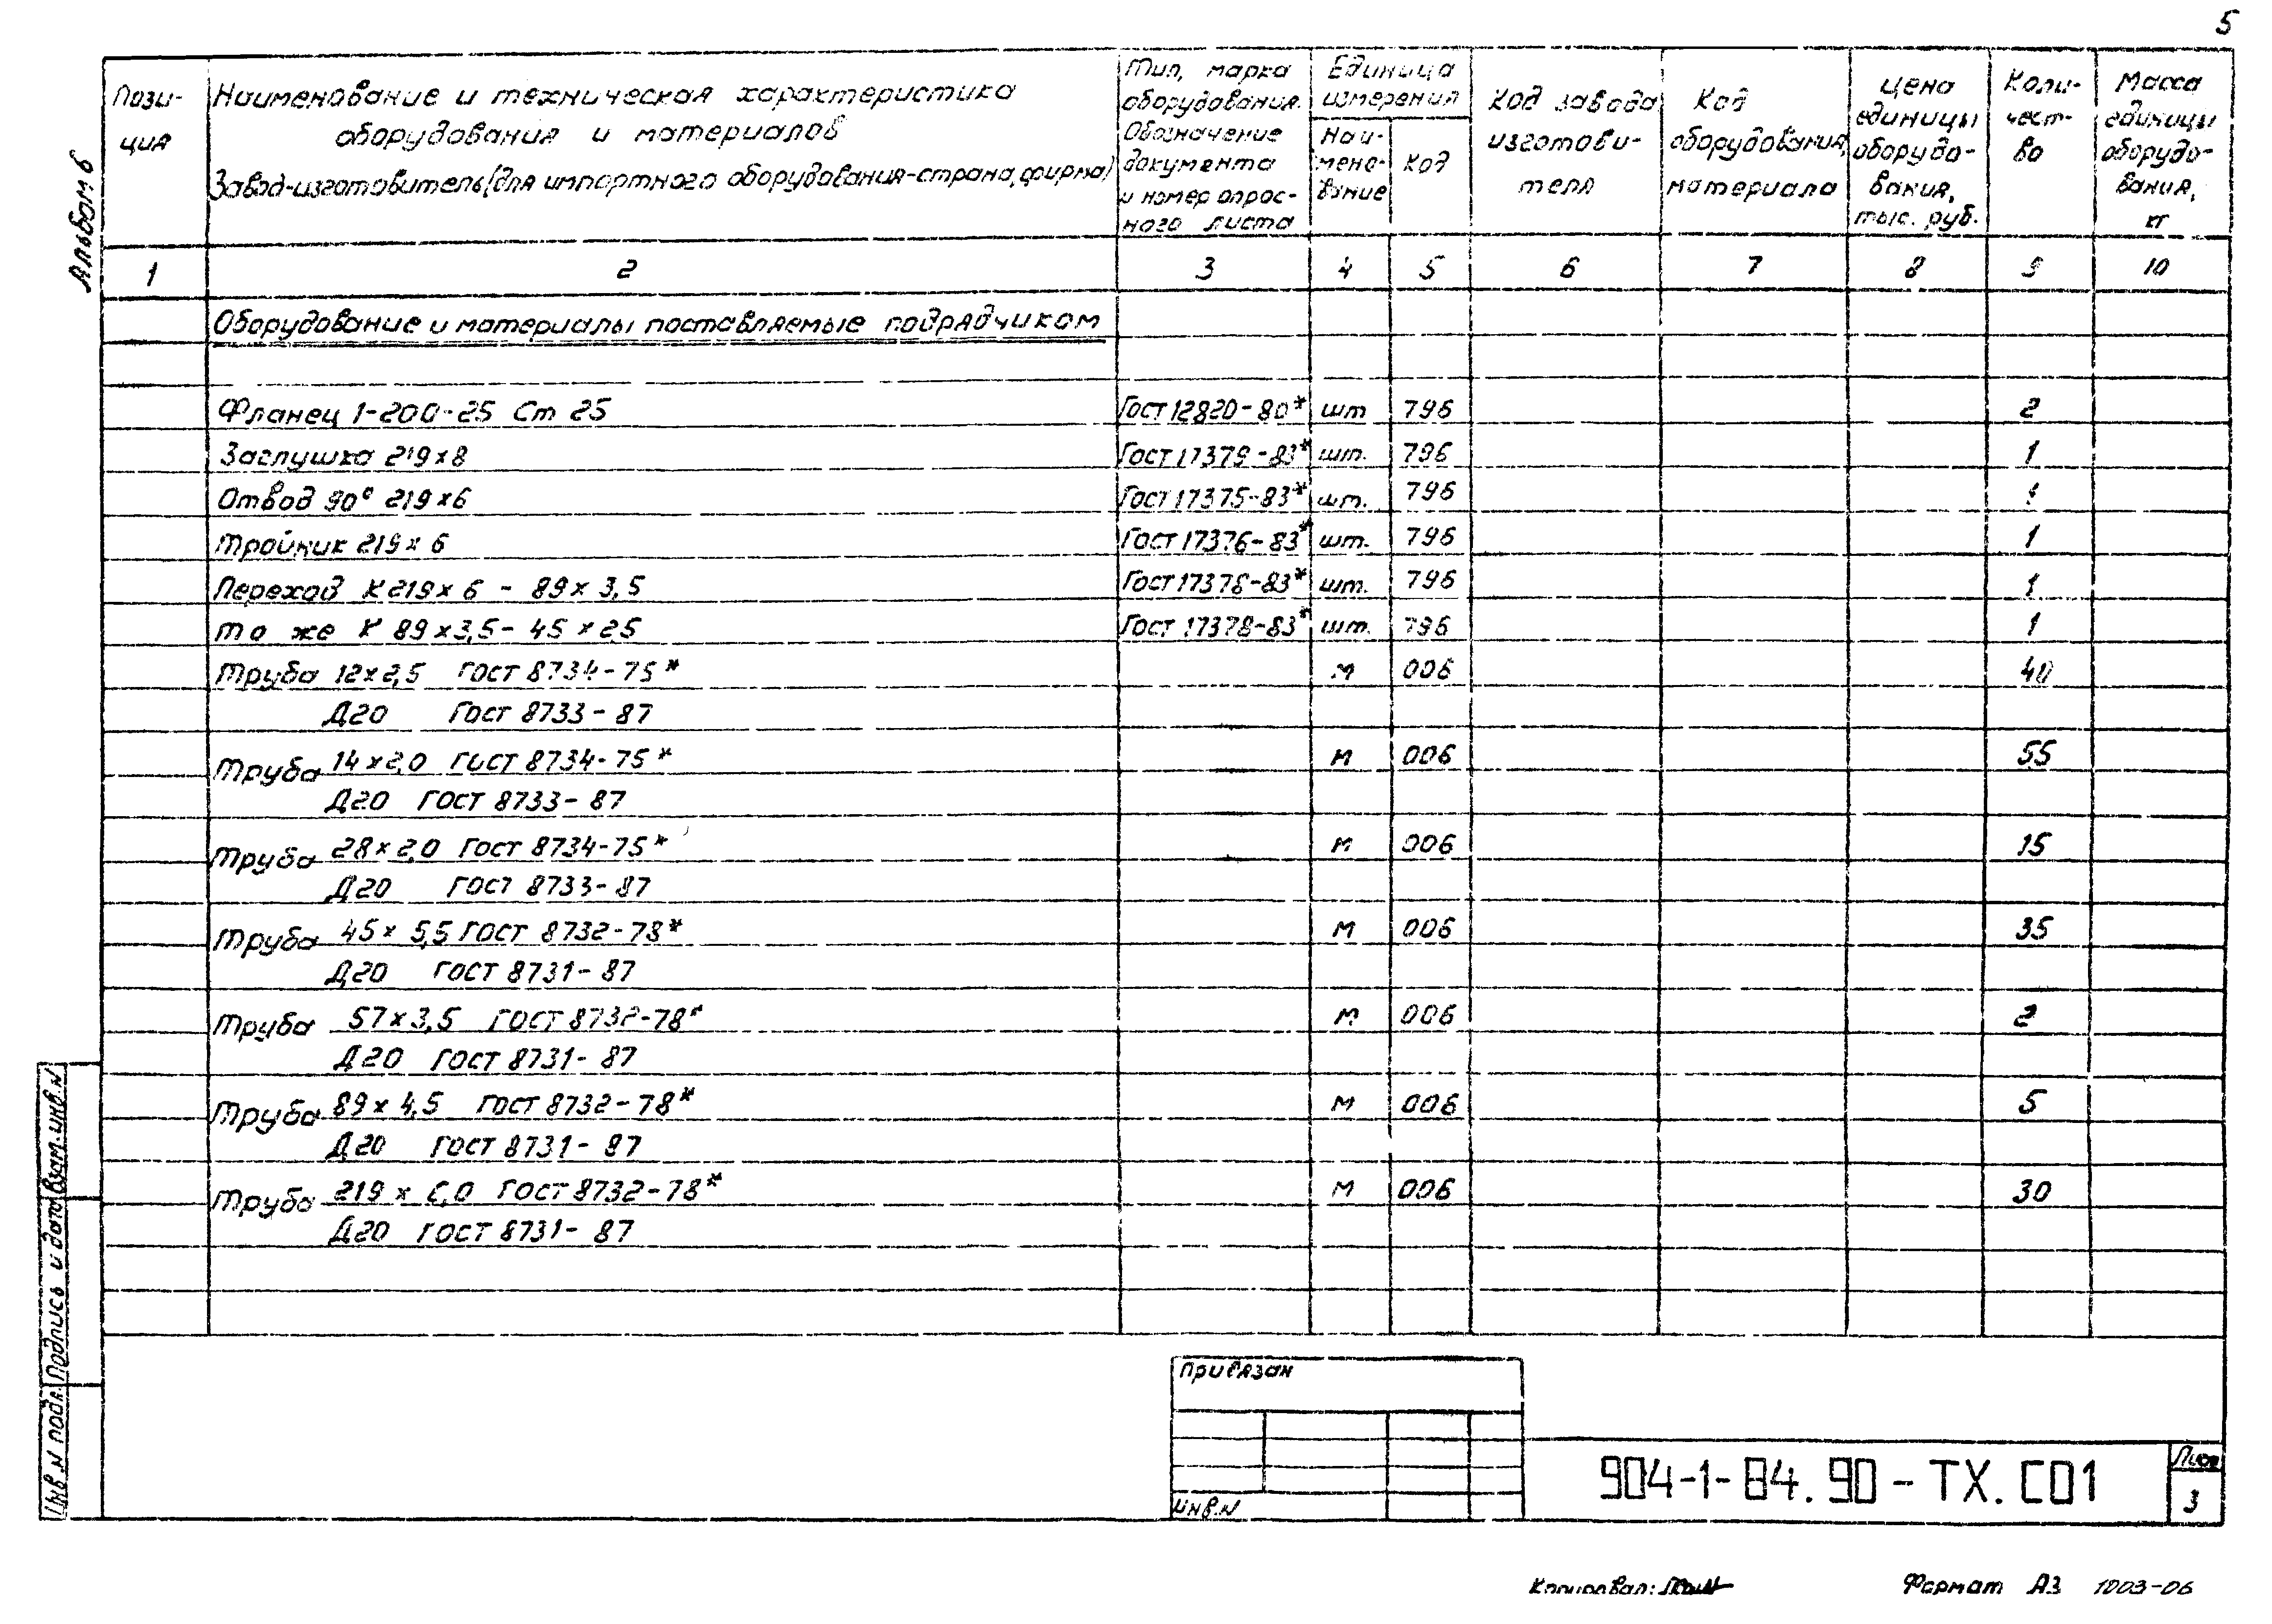 5
Альбом 6
Пози-
ция
Наименование и техническая характеристика
оборудования и материалов
Завод-изготовитель (для импортного оборудования-страна, фирма)
Тип, марка
оборудования.
Обозначение
документа
и номер опрос-
ного листа
Единица
измерения
Наи-
мено-
вание
Код
Код завода
изготови-
теля
Код
оборудования,
материала
Цена
единицы
оборудо-
вания,
тыс. руб.
Коли-
чест-
во
Масса
единицы
оборудо-
вания,
кг
1 2 3 4 5 6 7 8 9 10
Оборудование и материалы поставляемые подрядчиком
Фланец 1-200-25 Ст 25 Гост 12820-80* шт 796 2
Заглушка 219х8 Гост 17379-83* шт. 796 1
Отвод 90° 219х6 Гост 17375-83* шт. 796 1
Тройник 219х6 Гост 17376-83* шт. 796 1
Переход К 219х6 - 89х3,5 Гост 17378-83* шт. 796 1
То же К 89х3,5-45х2,5 Гост 17378-83* шт. 796 1
Труба 12х2,5 Гост 8734-75* м 006 40
Д20 Гост 8733-87
Труба 14х2,0 Гост 8734-75* м 006 55
Д20 Гост 8733-87
Труба 28х2,0 Гост 8734-75* м 006 15
Д20 Гост 8733-87
Труба 45х5,5 Гост 8732-78* м 006 35
Д20 Гост 8731-87
Труба 57х3,5 Гост 8732-78* м 006 2
Д20 Гост 8731-87
Труба 89х4,5 Гост 8732-78* м 006 5
Д20 Гост 8731-87
Труба 219х6,0 Гост 8732-78* м 006 30
Д20 Гост 8731-87
Взам. инв. N
Подпись и дата
Инв. N подл.
Привязан
Инв. N
904-1-84.90-ТХ.СО1
Лист
3
Копировал:
Формат А3 1003-06